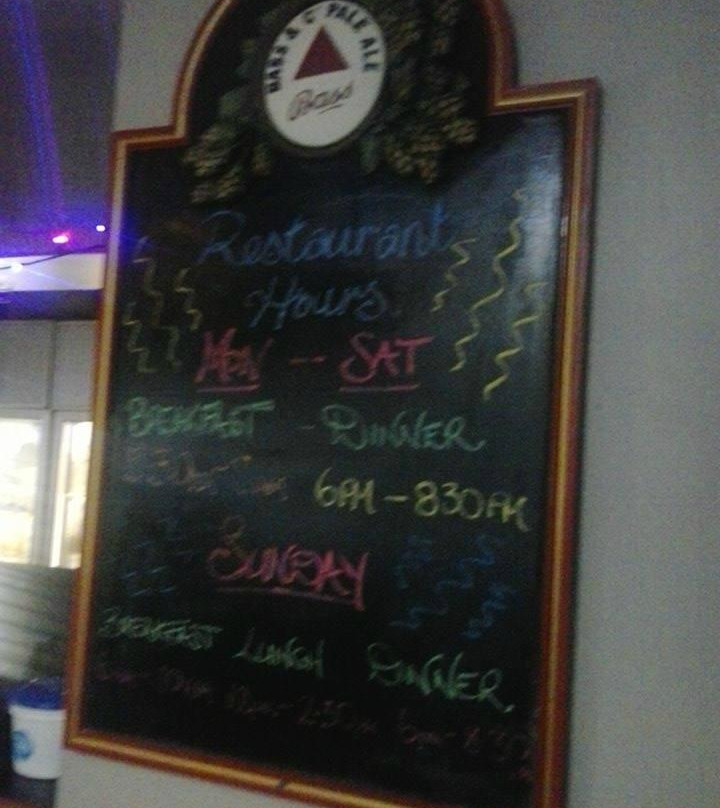 BASS & Co PALE ALE
Bass
Restaurant
Hours
MON -- SAT
BREAKFAST - DINNER
6PM - 830PM
SUNDAY
BREAKFAST LUNCH DINNER